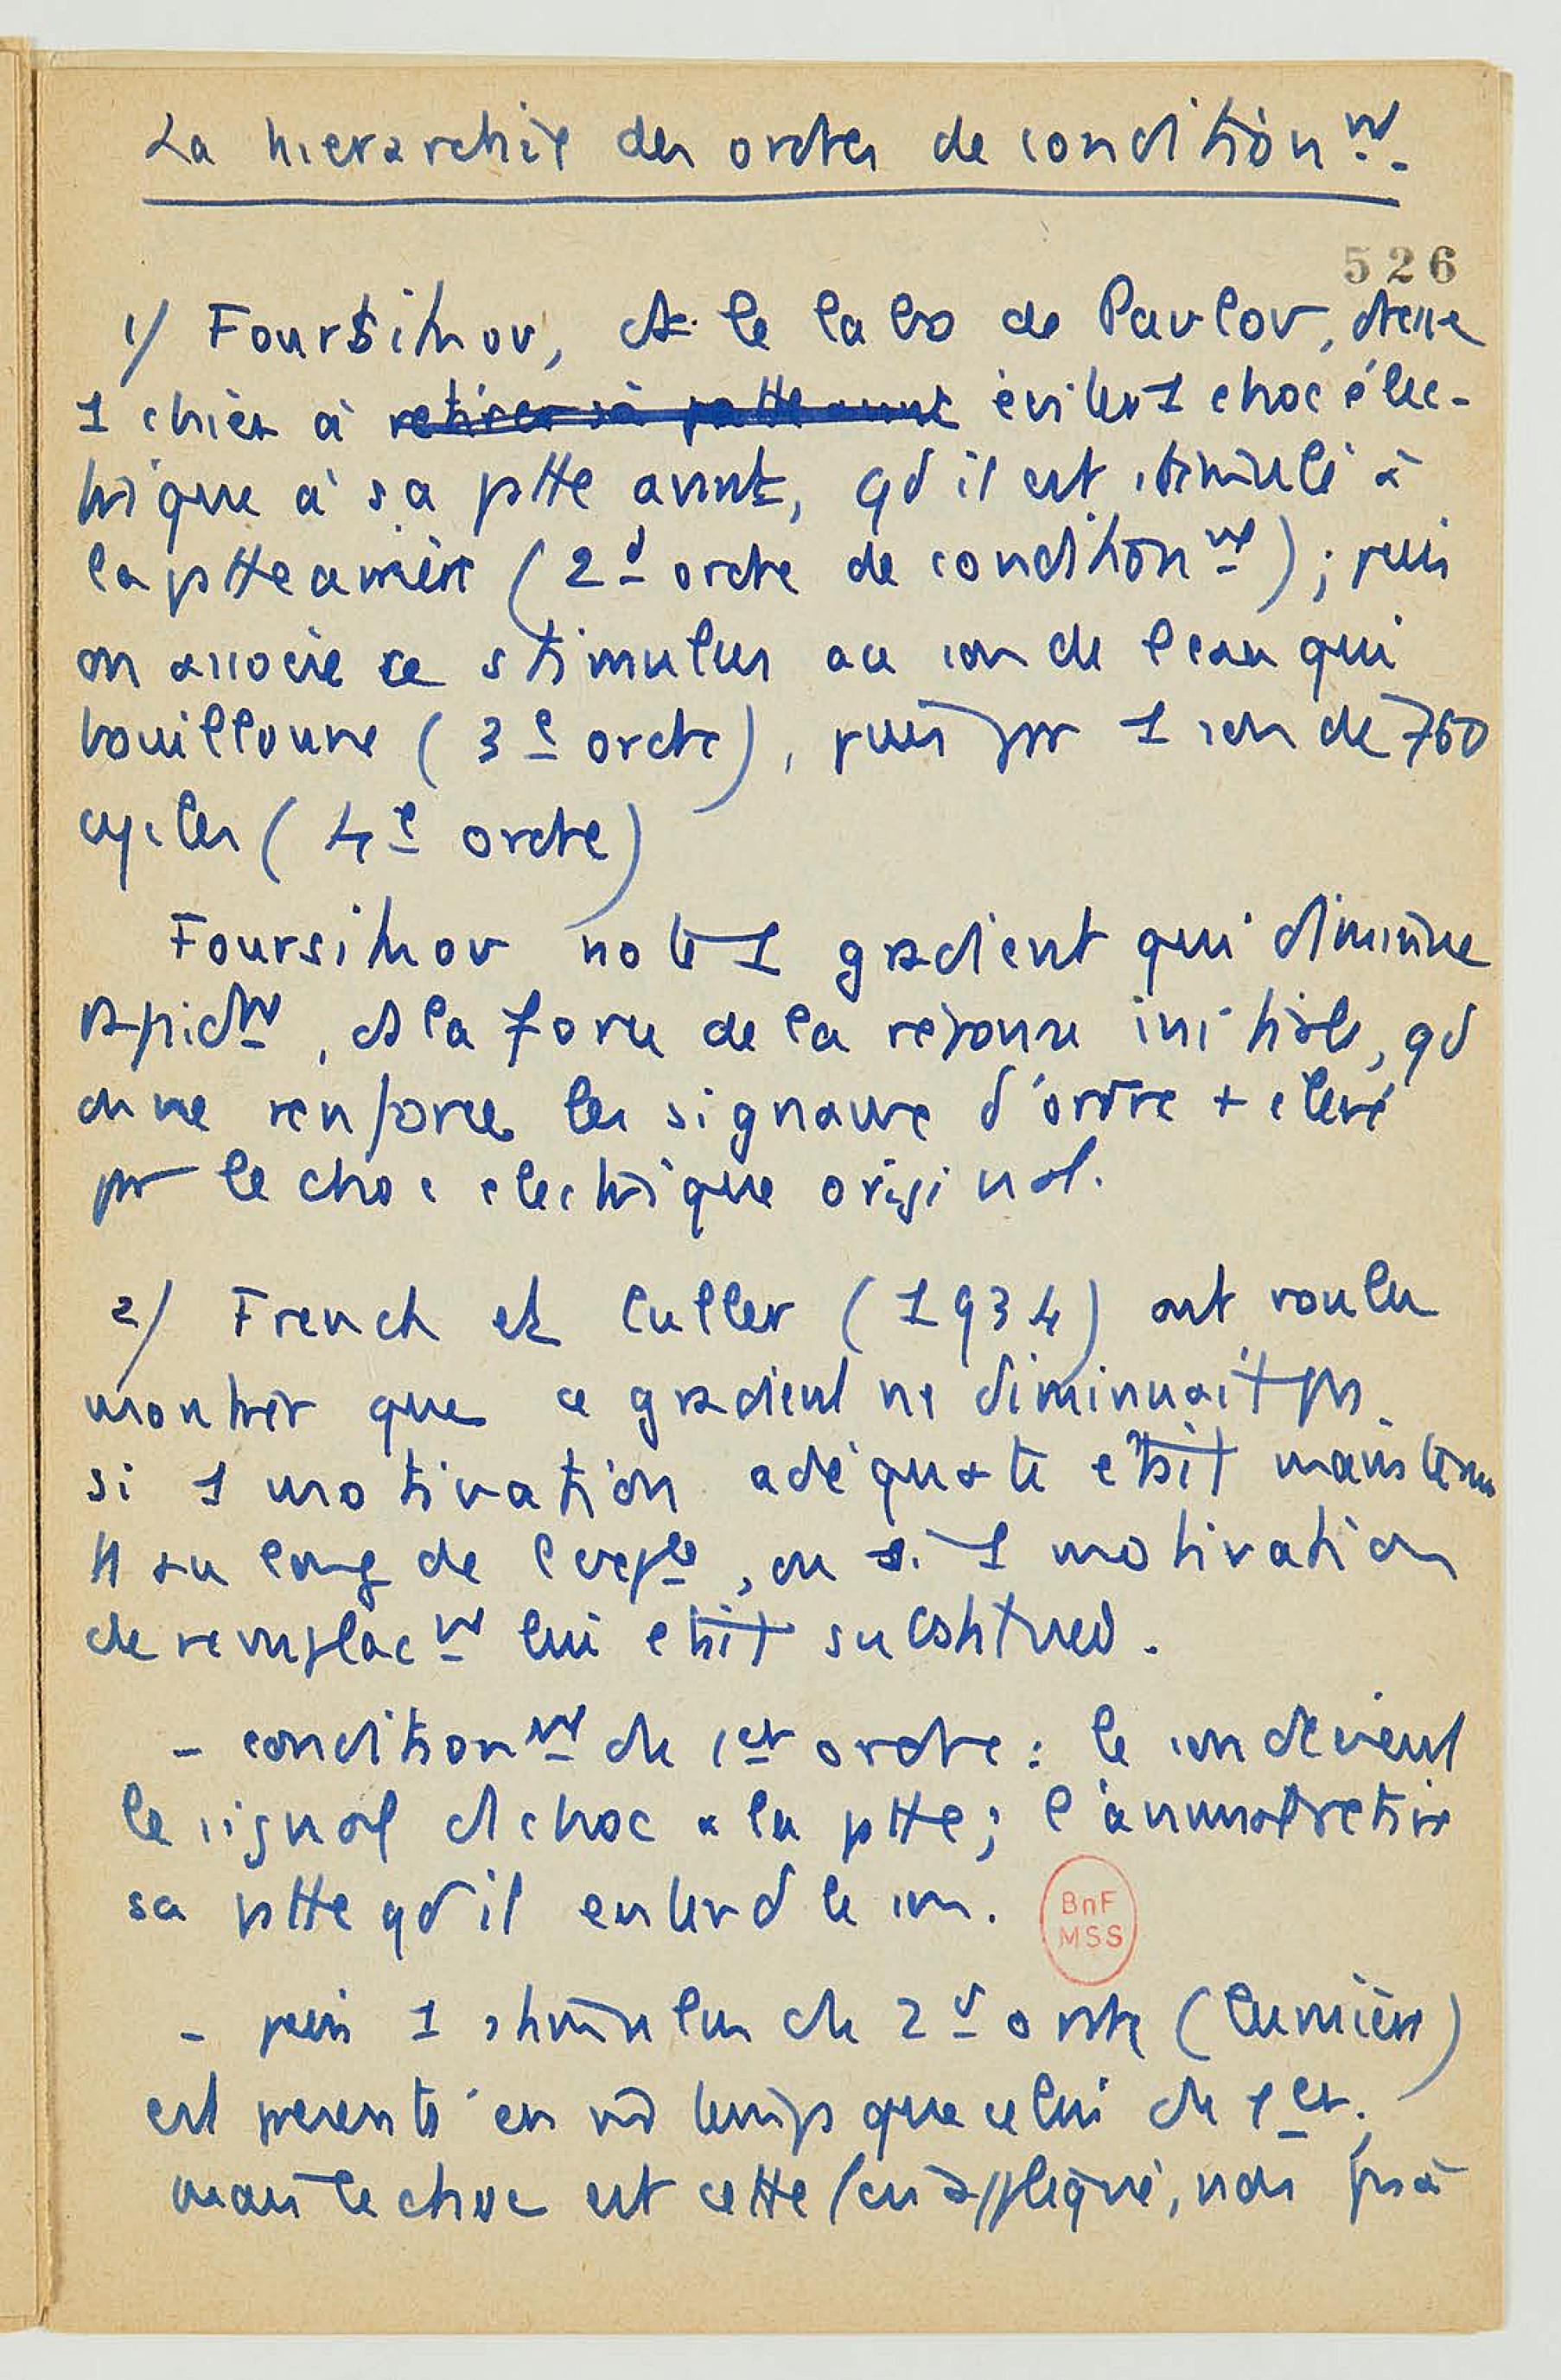 La hierarchie des ordres de conditionnt.
526
1/ Foursikov, ds le labo de Pavlov, dresse
1 chien à retirer sa patte avant éviter 1 choc élec-
trique à sa ptte avant, qd il est stimulé à
la ptte arrière (2d ordre de conditionnt) ; puis
on associe ce stimulus au son de l'eau qui
bouillonne (3e ordre), puis par 1 son de 760
cycles (4e ordre)
Foursikov note 1 gradient qui diminue
rapidmt, ds la force de la réponse initiale, qd
on ne renforce les signaux d'ordre + élevé
par le choc electrique original.
2/ French et Culler (1934) ont voulu
montrer que ce gradient ne diminuait pas
si 1 motivation adéquate etait maintenue
tt au long de l'expce, ou si 1 motivation
de remplacnt lui etait substituée.
- conditionnt de 1er ordre : le son devient
le signal d choc à la ptte ; l'animal retire
sa ptte qd il entend le son.
BnF
MSS
- puis 1 stimulus de 2d ordre (lumière)
est presenté en m temps que celui de 1er ;
mais le choc est cette fois appliqué, non pas à